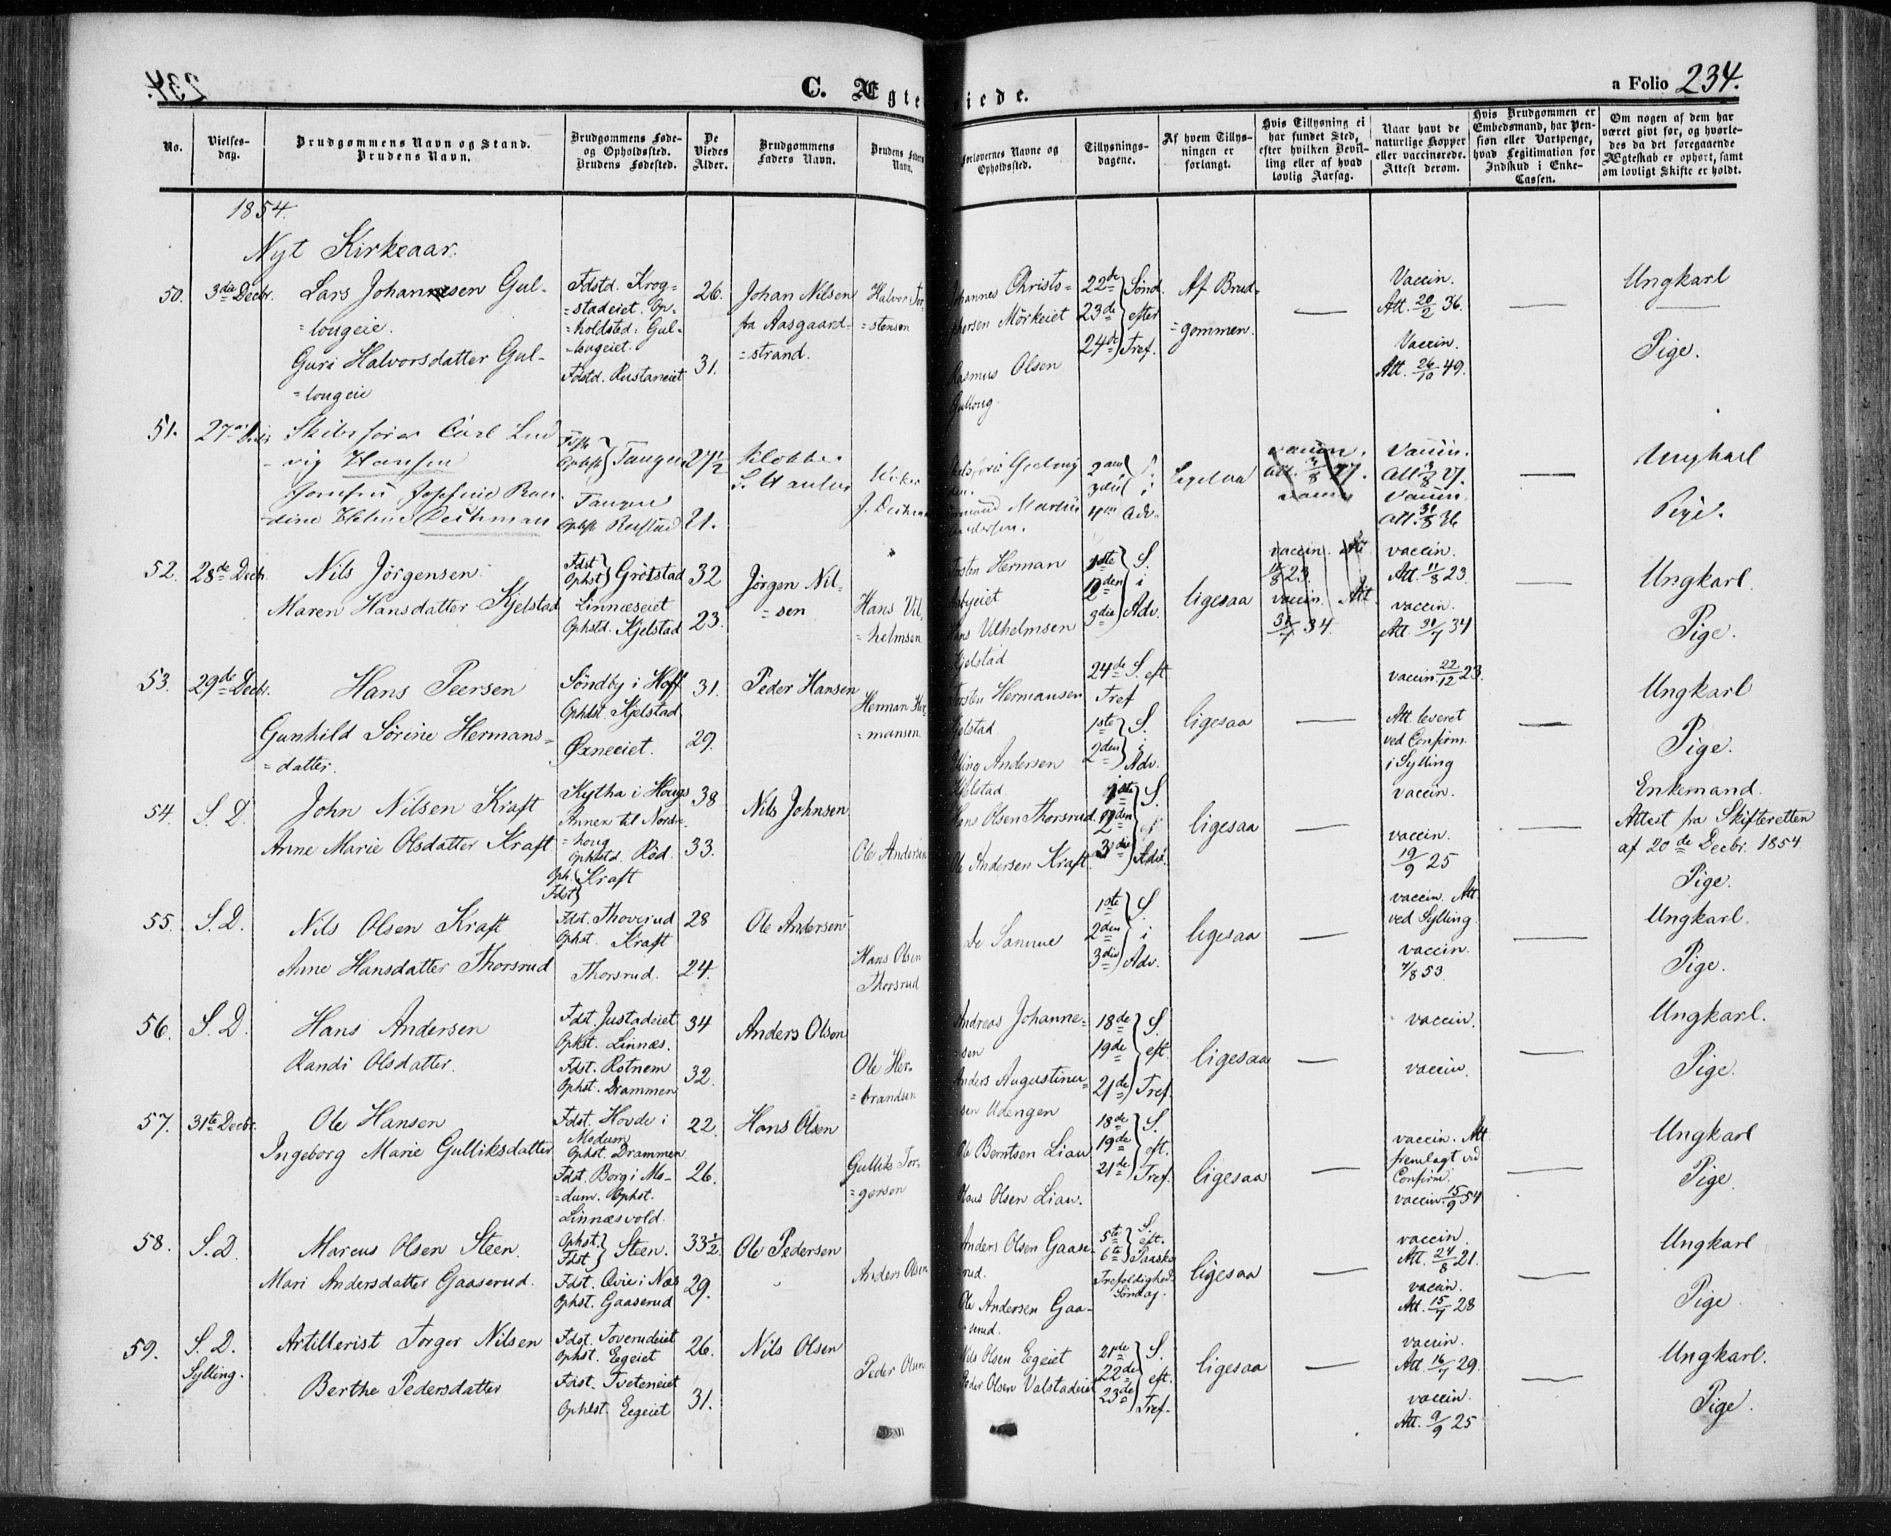 C. Ægteviede.
a Folio 234.
No.
Vielses-
dag.
Brudgommens Navn og Stand.
Brudens Navn.
Brudgommens Føde-
og Opholdssted.
Brudens Fødested.
De
Viedes
Alder.
Brudgommens
Faders Navn.
Brudens Faders
Navn.
Forlovernes Navne og
Opholdssted.
Tillysnings-
dagene.
Af hvem Tillys-
ningen er
forlangt.
Hvis Tillysning ei
har fundet Sted,
efter hvilken Bevil-
ling eller af hvad
lovlig Aarsag.
Naar havt de
naturlige Kopper
eller vaccinerede.
Attest derom.
Hvis Brudgommen er
Embedsmand, har Pen-
sion eller Vartpenge,
hvad Legitimation for
Indskud i Enke-
Cassen.
Om nogen af dem har
været givt før, og hvorle-
des da det foregaaende
Ægteskab er ophørt, samt
om lovligt Skifte er holdt.
1854.
Nyt Kirkeaar.
50. 3die Decbr.
Lars Johannesen Gul-
=lougeie.
Guri Halvorsdatter Gul-
=lougeie
Fdstd. Krog=
=stadeiet. Op-
=holdsted: Gul-
=lougeiet.
Fdstd. Rustaneiet
26.
31.
Johan Nilsen
fra Aasgaard=
=strand.
Halvor Tor
=stensen
Johannes Christo=
phersen Mörkeiet
Rasmus Olsen
Gulloug
22de Sönd.
23de efter
24de Tref.
Af Brud=
=gommen.
Vaccin.
Att. 20/2 36.
Vaccin.
Att. 26/10 49.
Ungkarl
Pige.
51. 27de
Skibsfører Carl Lud
-vig Hansen
Josefine
-dine Helene Deichman
Tangen
Tangen
27½
21.
Ligesaa
vaccin.
Att. 3/8 27.
vaccin
Vaccin.
Att. 3/8 27.
Vaccin.
Att. 31/8 36
Ungkarl
Pige.
52. 28de Decbr.
Nils Jörgensen.
Maren Hansdatter Kjelstad
Fdst
Ophst Grötstad
Linnæseiet
Ophstd. Kjelstad
32
23.
Jörgen Nil-
=sen
Hans Vil
=helmsen
Torsten Herman
Hans Vilhelmsen
Kjelstad
1ste S.
2den i
3die Adv.
ligesaa
vaccin. Att
11/8 23.
vaccin. Att.
31/7 34.
vaccin.
Att. 11/8 23.
vaccin.
Att. 31/7 34
Ungkarl.
Pige.
53. 29de Decbr.
Hans Peersen
Gunhild Sørine Hermans=
=datter.
Söndby i Hoff
Ophdst. Kjelstad
Øxneeiet.
31.
29.
Peder Hansen
Herman Her
=mansen
Torsten Hermansen
Kjelstad
Elling Andersen
Kjelstad
24de S. eft
Tref
1ste S.
2den i
Adv.
ligesaa
vaccin 22/12 23.
Att. leveret
ved Confirm.
i Sylling
Ungkarl
Pige.
54. S. D.
John Nilsen Kraft
Anne Marie Olsdatter Kraft
Kytha i Hougs
Annex til Nordre
=houg
Ophstd. Röd.
Oph. Kraft
Fdst
38
33.
Nils Johnsen
Ole Andersen
Hans Olsen Thorsrud.
Ole Andersen Kraft
1ste S.
2den
3die Adv.
ligesaa
vaccin.
vaccin.
19/9 25
Enkemand.
Attest fra Skifteretten
af 20de Decbr. 1854
Pige.
55. S. D.
Nils Olsen Kraft
Anne Hansdatter Thorsrud
Fdst. Thoverud
Ophst. Kraft
Thorsrud.
28
24.
Ole Andersen
Hans Olsen
Thorsrud
De Samme
1ste S.
2den i
3die Adv.
ligesaa
vaccin. Att
ved Sylling.
vaccin.
7/8 53.
Ungkarl.
Pige.
56. S. D.
Hans Andersen
Randi Olsdatter.
Fdst. Justadeiet
Ophst. Linnæs.
Fdst. Rotnem
Ophst. Drammen
34
32.
Anders Olsen
Ole Her-
=brandsen
Andreas Johanne-
=sen
Anders Augustinu-
sen Udengen
18de S.
19de eft.
21de Tref.
ligesaa
vaccin.
vaccin.
Ungkarl.
Pige.
57. 31te Decbr.
Ole Hansen
Ingeborg Marie Gulliksdatter
Fdst. Hovde i
Modum
Ophst. Drammen
Fdst. Borg i Mo-
=dum. Ophst.
Linnæsvold.
22.
26.
Hans Olsen
Gullik Tor-
=gersen
Ole Berntsen Lian
Hans Olsen Lian.
18de S.
19de eft.
21de Tref.
ligesaa
vaccin. Att
fremlagt ved
Confirm.
vaccin. 15/9 54
Ungkarl
Pige.
58. S. D.
Marcus Olsen Steen.
Mari Andersdatter Gaaserud.
Ophst.
Fdst Steen.
Fdst. Qvie i Næs
Ophst. Gaaserud
33½
29.
Ole Pedersen
Anders Olsen
Anders Olsen Gaase-
=rud.
Ole Andersen Gaa-
=serud.
5te S. eft.
6te Paaske
Trefoldigheds
Søndag.
ligesaa
vaccin.
Att. 24/8 21.
vaccin.
Att. 15/7 28
Ungkarl
Pige.
59. S. D.
Sylling.
Artillerist Torger Nilsen
Berthe Pedersdatter
Fdst. Toverudeiet
Ophst. Eegeiet
Fdst. Tveteneiet
Ophlst. Eegeiet
26.
31.
Nils Olsen
Peder Olsen
Nils Olsen Egeiet
Peder Olsen Valstadeiet
21de S.
22de eft.
23de Tref.
ligesaa
vaccin.
Att. 16/7 29.
vaccin.
Att. 9/9 25
Ungkarl.
Pige.